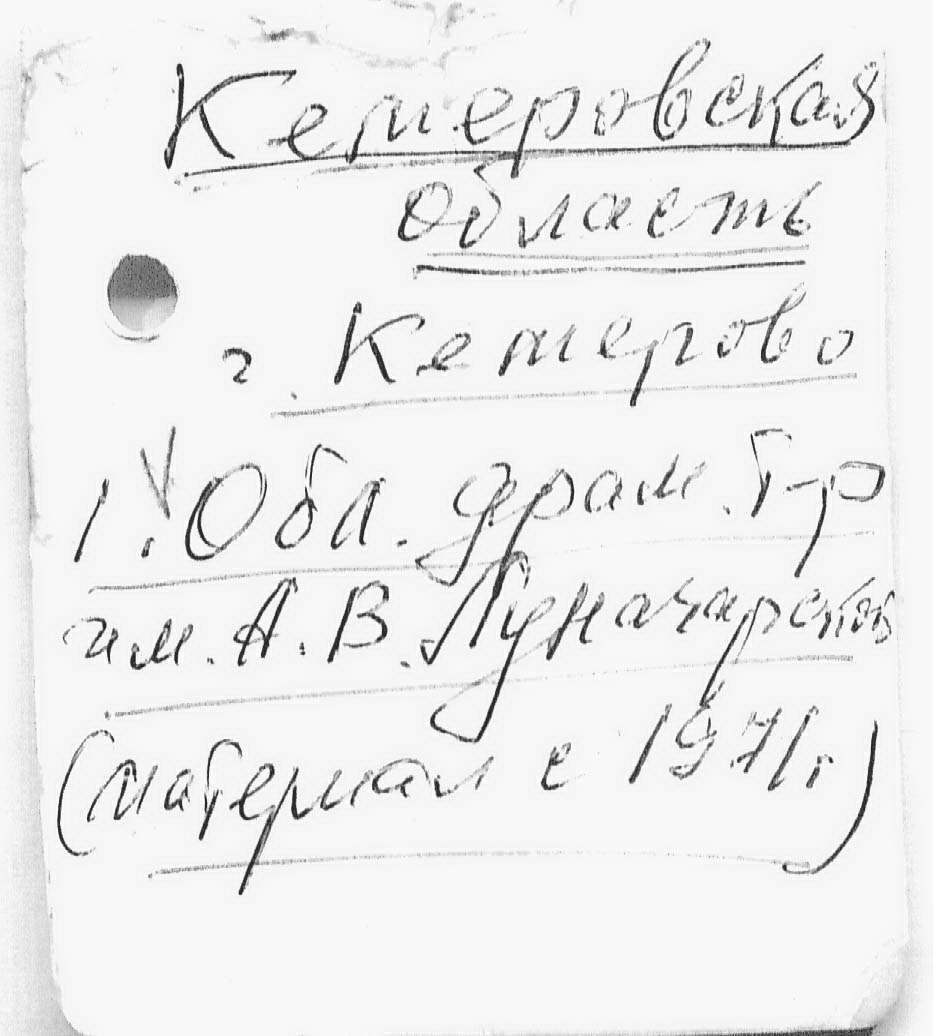 Кемеровская
область
г. Кемерово
1. Обл. драм. т-р
им. А. В. Луначарского
(материал с 1971 г.)